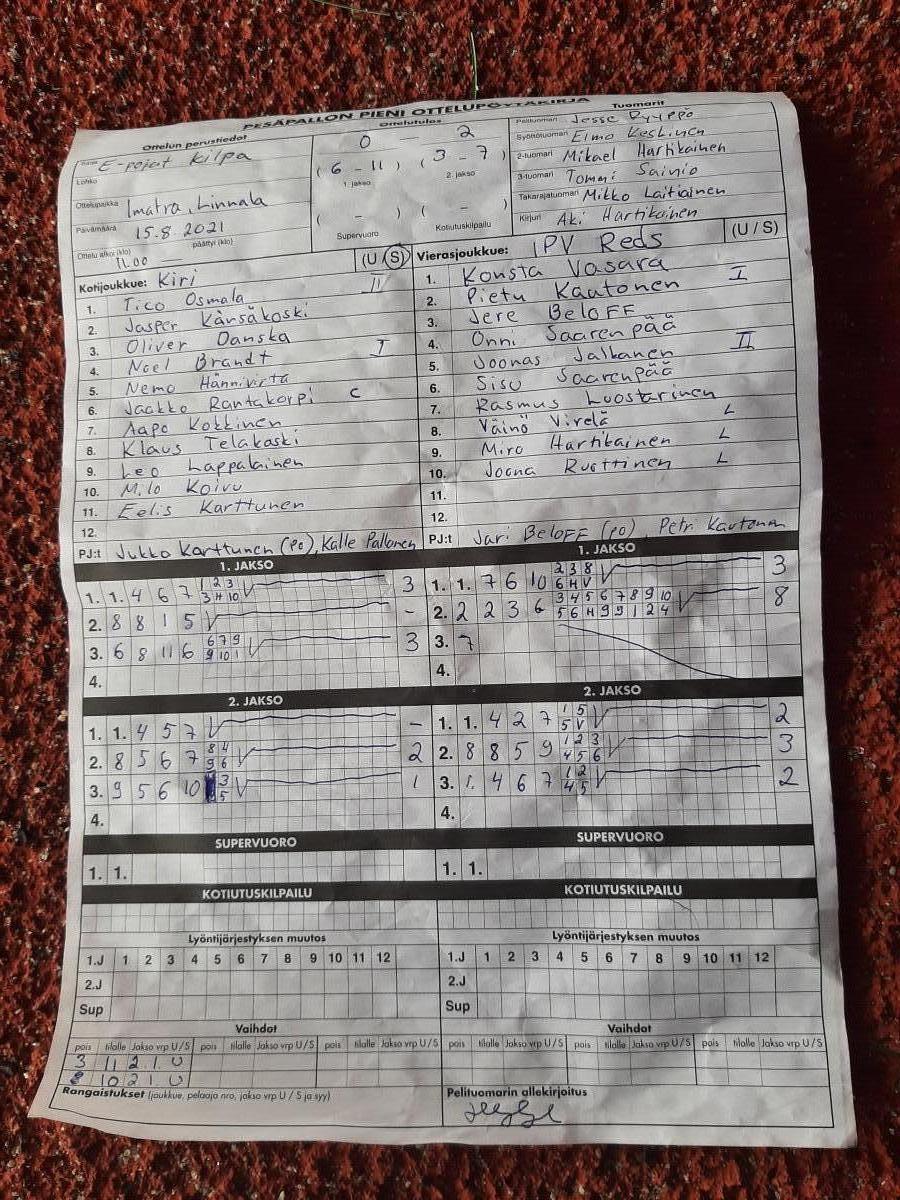 PESÄPALLON PIENI OTTELUPÖYTÄKIRJA
Ottelun perustiedot
Ottelutulos
Tuomarit
Sarja E-pojat kilpa
Lohko
Ottelupaikka Imatra, Linnala
Päivämäärä 15.8 2021
Ottelu alkoi (klo) 11.00 päättyi (klo)
0 2
( 6 - 11 ) ( 3 - 7 )
1. jakso 2. jakso
( - ) ( - )
Supervuoro Kotiutuskilpailu
Pelituomari Jesse Ryyppö
Syöttötuomari Elmo Keskinen
2-tuomari Mikael Hartikainen
3-tuomari Tommi Sainio
Takarajatuomari Mikko Laitiainen
Kirjuri Aki Hartikainen
Kotijoukkue: Kiri (U / S)
1. Tico Osmala II
2. Jasper Kärsäkoski
3. Oliver Danska
4. Noel Brandt I
5. Nemo Hännivirta
6. Jaakko Rantakorpi C
7. Aapo Kokkinen
8. Klaus Telakoski
9. Leo Lappalainen
10. Milo Koivu
11. Eelis Karttunen
12.
PJ:t Jukko Karttunen (PO), Kalle Pallonen
Vierasjoukkue: IPV Reds (U / S)
1. Konsta Vasara
2. Pietu Kautonen I
3. Jere Beloff
4. Onni Saarenpää
5. Joonas Jalkanen II
6. Sisu Saarenpää
7. Rasmus Luostarinen
8. Väinö Virelä L
9. Miro Hartikainen L
10. Joona Ruottinen L
11.
12.
PJ:t Jari Beloff (PO), Petri Kautonen
1. JAKSO
1. 1. 4 6 7 1 2 3 3
3 4 10
2. 8 8 1 5 -
3. 6 8 11 6 6 7 9 3
9 10 1
4.
1. JAKSO
1. 1. 7 6 10 2 3 8 3
6 4 V
2. 2 2 3 6 3 4 5 6 7 8 9 10 8
5 6 4 9 9 1 2 4
3. 7
4.
2. JAKSO
1. 1. 4 5 7 -
2. 8 5 6 7 8 4 2
9 6
3. 9 5 6 10 3 1
5
4.
2. JAKSO
1. 1. 4 2 7 1 5 2
5 V
2. 8 8 5 9 1 2 3 3
4 5 6
3. 1. 4 6 7 1 2 2
4 5
4.
SUPERVUORO
1. 1.
SUPERVUORO
1. 1.
KOTIUTUSKILPAILU
KOTIUTUSKILPAILU
Lyöntijärjestyksen muutos
1.J 1 2 3 4 5 6 7 8 9 10 11 12
2.J
Sup
Lyöntijärjestyksen muutos
1.J 1 2 3 4 5 6 7 8 9 10 11 12
2.J
Sup
Vaihdot
pois tilalle Jakso vrp U/S pois tilalle Jakso vrp U/S pois tilalle Jakso vrp U/S
3 11 2 1. U
10 2 1. U
Vaihdot
pois tilalle Jakso vrp U/S pois tilalle Jakso vrp U/S pois tilalle Jakso vrp U/S
Rangaistukset (joukkue, pelaaja nro, jakso vrp U / S ja syy)
Pelituomarin allekirjoitus